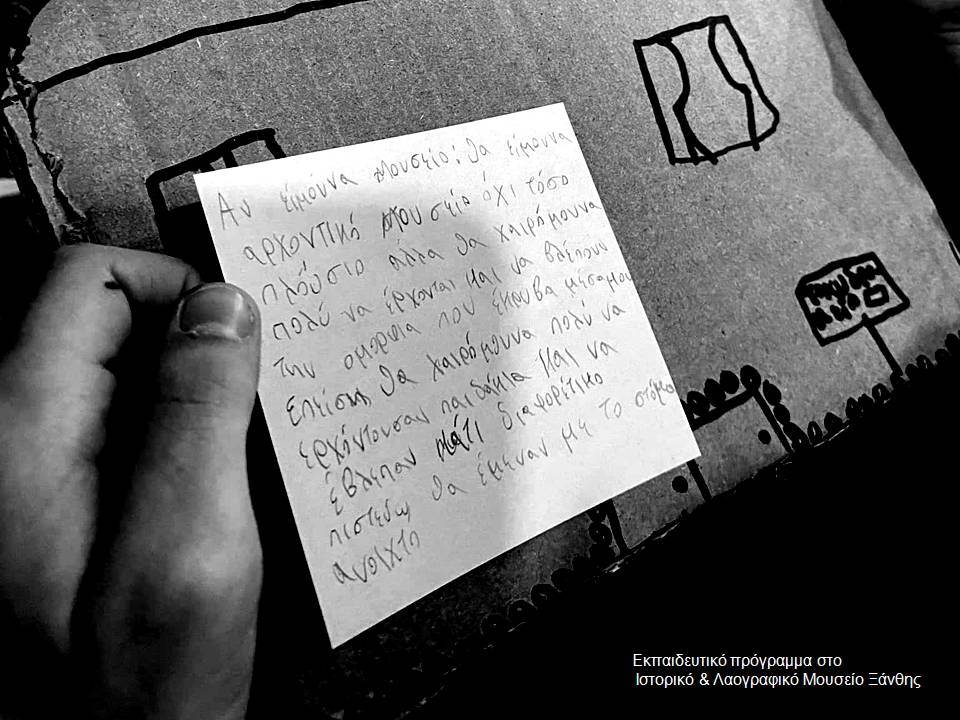 Αν είμουνα μουσείο: θα είμουνα
αρχοντικό μουσείο όχι τόσο
πλόυσιο αλλα θα χαιρόμουνα
πολύ να έρχονται και να βλέπουν
την ομορφια που έκρυβα μέσα μου
επείσης θα χαιρόμουνα πολύ να
ερχόντουσαν παιδάκια και να
έβλεπαν κάτι διαφορέτικο
πιστεύω θα έμεναν με το στόμα
ανοιχτο
Εκπαιδευτικό πρόγραμμα στο
Ιστορικό & Λαογραφικό Μουσείο Ξάνθης